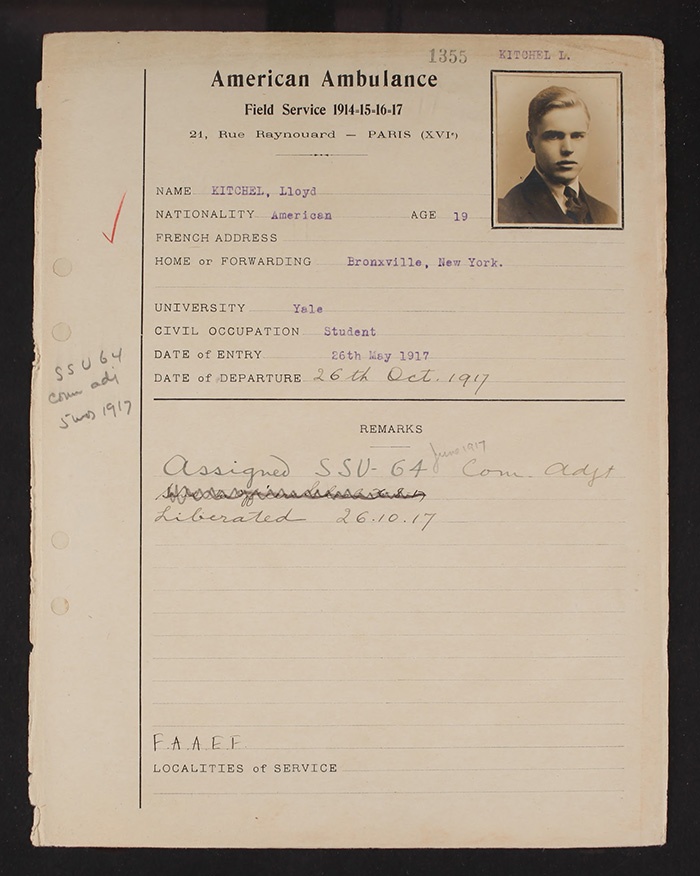 1355 KITCHEL L.
American Ambulance
Field Service 1914-15-16-17
21, Rue Raynouard — PARIS (XVIe)
NAME KITCHEL, Lloyd
NATIONALITY American AGE 19
FRENCH ADDRESS
HOME or FORWARDING Bronxville, New York.
UNIVERSITY Yale
CIVIL OCCUPATION Student
DATE of ENTRY 26th May 1917
DATE of DEPARTURE 26th Oct. 1917
SSU 64
com adj
5 mos 1917
REMARKS
June 1917
Assigned SSU-64 Com. Adjt
Liberated 26.10.17
F.A.A.E.F.
LOCALITIES of SERVICE